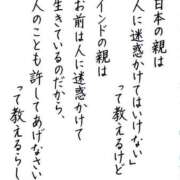 日本の親は
人に迷惑かけてはいけない」
って教えるけど
インドの親は
お前は人に迷惑かけて
生きているのだから、
人のことも許してあげなさい
って教えるらし